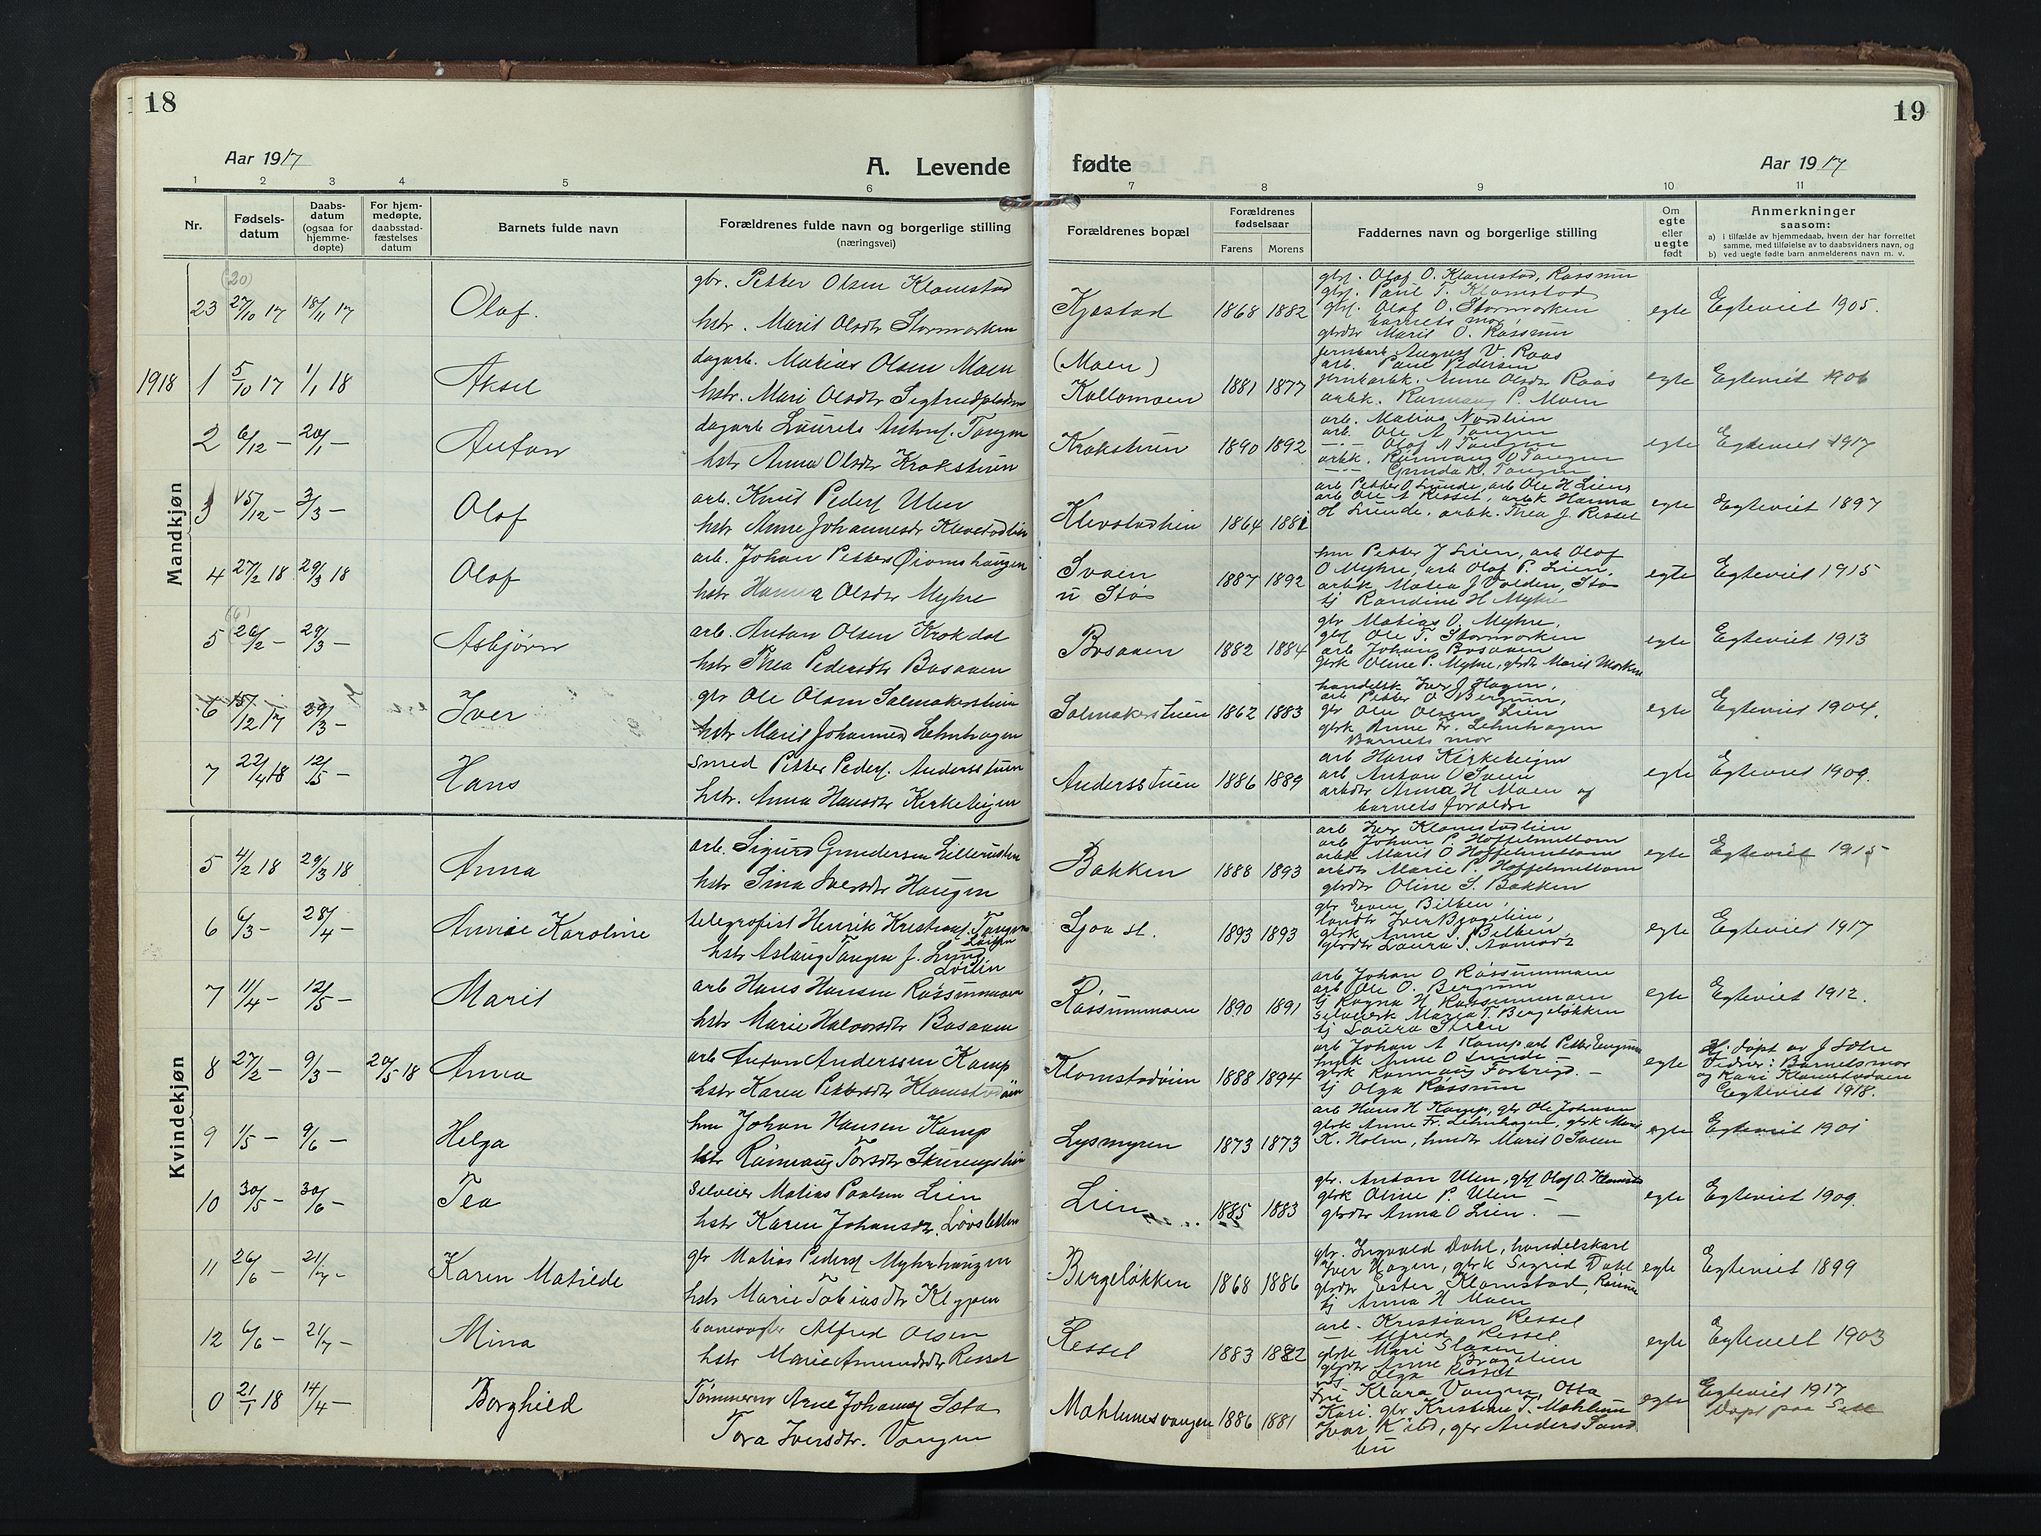 18
Aar 1917
A. Levende
1 2 3 4 5 6
Nr. Fødsels-datum Daabs-datum (ogsaa for hjemme-døpte) For hjem-medøpte, daabsstad-fæstelses datum Barnets fulde navn Forældrenes fulde navn og borgerlige stilling (næringsvei)
Mandkjøn
(20)
23 27/10 17 18/11 17 Olaf. gbr. Petter Olsen Klomstad
hstr. Marit Olsdtr Stormorken
1918 1 5/10 17 1/1 18 Aksel dagarb. Matias Olsen Moen
hstr. Mari Olsdtr
2 6/12 — 20/1 — Anton dagarb Laurits Tangen
hstr Anna Olsdtr Krokstuen
3 15/12 — 3/3 — Olof arb. Knut Peders Ulen
hstr Anne Johannesdtr Klevstadlien
4 27/2 18 29/3 18 Olaf arb. Johan Petter
hstr Hanna Olsdtr Myhre
5 26/2 — 29/3 — Asbjørn arb. Anton Olsen Krokdal
hstr Thea Pedersdtr Basaaen
6 15/12 17 29/3 — Iver gbr Ole Olsen Salmakerstuen
hstr Marit Johannesd Lehnhagen
7 22/4 18 12/5 — Hans smed Petter Peders. Andersstuen
hstr. Anna Hansdtr Kirketeigen
Kvindekjøn
5 4/2 18 29/3 18 Anna arb. Sigurd Gundersen
hstr Sina Iversdtr Haugen
6 6/3 — 28/4 — Annie Karoline telegrafist Henrik Kristians. Tangen
hstr Aslaug Tangen f.
7 11/4 — 12/5 — Marit arb Hans Hansen Røssummoen
hstr Marie Halvorsdtr Basaaen
8 27/2 — 9/3 — 20/5 18 Anna arb Anton Anderssen Kamp
hstr Karen Pettersdtr
9 1/5 — 9/6 — Helga hm Johan Hansen Kamp
hstr Rønnaug Torsdtr
10 30/5 — 30/6 — Tea selveier Matias Paalsen Lien
hstr Karen Johansdtr. Løvsletten
11 26/6 — 21/7 — Karen Matilde gbr Matias Peders Myhrhaugen
hstr Marie Tobiasdtr Klypen
12 6/6 — 21/7 — Mina banevogter Alfred Olsen
hstr Marie Amundsdtr Resset
0 21/1 18 14/4 — Borghild Tømmerm Arne Johannes Sæta
Tora Iversdtr. Vangen
19
fødte
Aar 1917
7 8 9 10 11
Forældrenes bopæl Forældrenes fødselsaar Farens Morens Faddernes navn og borgerlige stilling Om egte eller uegte født Anmerkninger saasom:
a) i tilfælde av hjemmedaab, hvem der har forrettet samme, med tilføielse av to daabsvidners navn, og
b) ved uegte fødte barn anmelderens navn m. v.
Kjæstad 1868 1882 gbr. Olaf O. Klomstad, Røssum
gbr. Paul T. Klomstad
gbr. Olaf O. Stormorken
barnets mor
gbrdtr Marit O. Røssum
egte Egteviet 1905.
(Moen)
Kollomoen 1881 1877 August V. Raas
arb. Paul Pedersen
Anne Olsdtr Raas
arbk. Rønnaug P. Moen
egte Egteviet 1906
Krokstuen 1890 1892 arb. Matias Nordlien
arb. Ole A Tangen
—·— Olaf A Tangen
arbk. Rønnaug O Tangen
—·— Gunda K. Tangen
egte Egteviet 1917
Klevstadlien 1864 1881 arb Petter O Lunde, arb Ole H Lien,
arb Ole A Resset, arbk Hanna
O Lunde, arbk. Thea J. Resset
egte Egteviet 1897
Svaen
u Stø 1887 1892 hm Petter J Lien, arb Olaf
O Myhre, arb Olaf P. Lien,
arbk Matea J Volden, Stø
tj Randine H Myhre
egte Egteviet 1915
Basaaen 1882 1884 gbr Matias O. Myhre,
gbr Ole T. Stormorken
arb Johan Basaaen
gbrk Oline P. Myhre, gbrdtr Marit Morken
egte Egteviet 1913
Salmakerstuen 1862 1883 handelsk Iver J Hagen,
arb Petter O Bergum,
gbr Ole Olsen Lien
gbrk Anne Fr. Lehnhagen
Barnets mor
egte Egteviet 1904.
Andersstuen 1886 1889 arb Hans Kirketeigen
arb Anton O Svaen
arbdtr Anna H Moen og
barnets forældre
egte Egteviet 1909.
Bakken 1888 1893 arb Iver Klomstadlien
arb Johan P. Hoffelmellom
arbk Marit O Hoffelmellom
arbdtr Marie P. Hoffelmellom
gbrdtr Oline S. Bakken
egte Egteviet 1915
Sjoa st. 1893 1893 gbr Even Bilben,
landh Iver Bragelien,
gbrk Anne I Bilben,
gbrdtr Laura I. Aamodt
egte Egteviet 1917
Røssummoen 1890 1891 arb Johan O Røssummoen
arb Ole O. Bergum
tj Ragna H Røssummoen
selveierk Maria T. Bergeløkken
tj Laura Stuen
egte Egteviet 1912.
Klomstadøien 1888 1894 arb Johan A Kamp arb Petter Tangrum
Anne O Lunde —
gbrk Rønnaug Forbrigd. —
tj Olga Røssum
egte Hj. døpt av J Sætre
Vidner: Barnets mor
og Kari Klomstadøien
Egteviet 1918.
Lysmyren 1873 1873 arb Hans H Kamp, gbr Ole Johnsen
gbrk Anne Fr. Lehnhagen, gbrk Marit
K. Holen, hmdtr Marit O Svaen
egte Egteviet 1901
Lien 1885 1883 gbr. Anton Ulen, gbr Olaf O. Klomstad
gbrk Oline P. Ulen —
gbrdtr Anna O Lien. —
egte Egteviet 1909.
Bergeløkken 1868 1886 gbr. Ingvald Dahl, handelskarl
Iver Hagen, gbrk Sigrid Dahl
gbrdtr Ester Klomstad, Røssum
tj Anna H Moen
egte Egteviet 1899
Resset 1883 1882 arb. Kristian Resset
— Alfred Resset
gbrk Mari Slaaen
gbrdtr Anne Bragelien
Olga Resset
egte Egteviet 1903
Mæhlumsvangen 1886 1881 Fru Klara Vangen, Otta
Kari. gbr Kristian T. Mæhlum
Ivar Kild, gbr Anders Sand
bu
egte Egteviet 1917
Døpt paa Sell